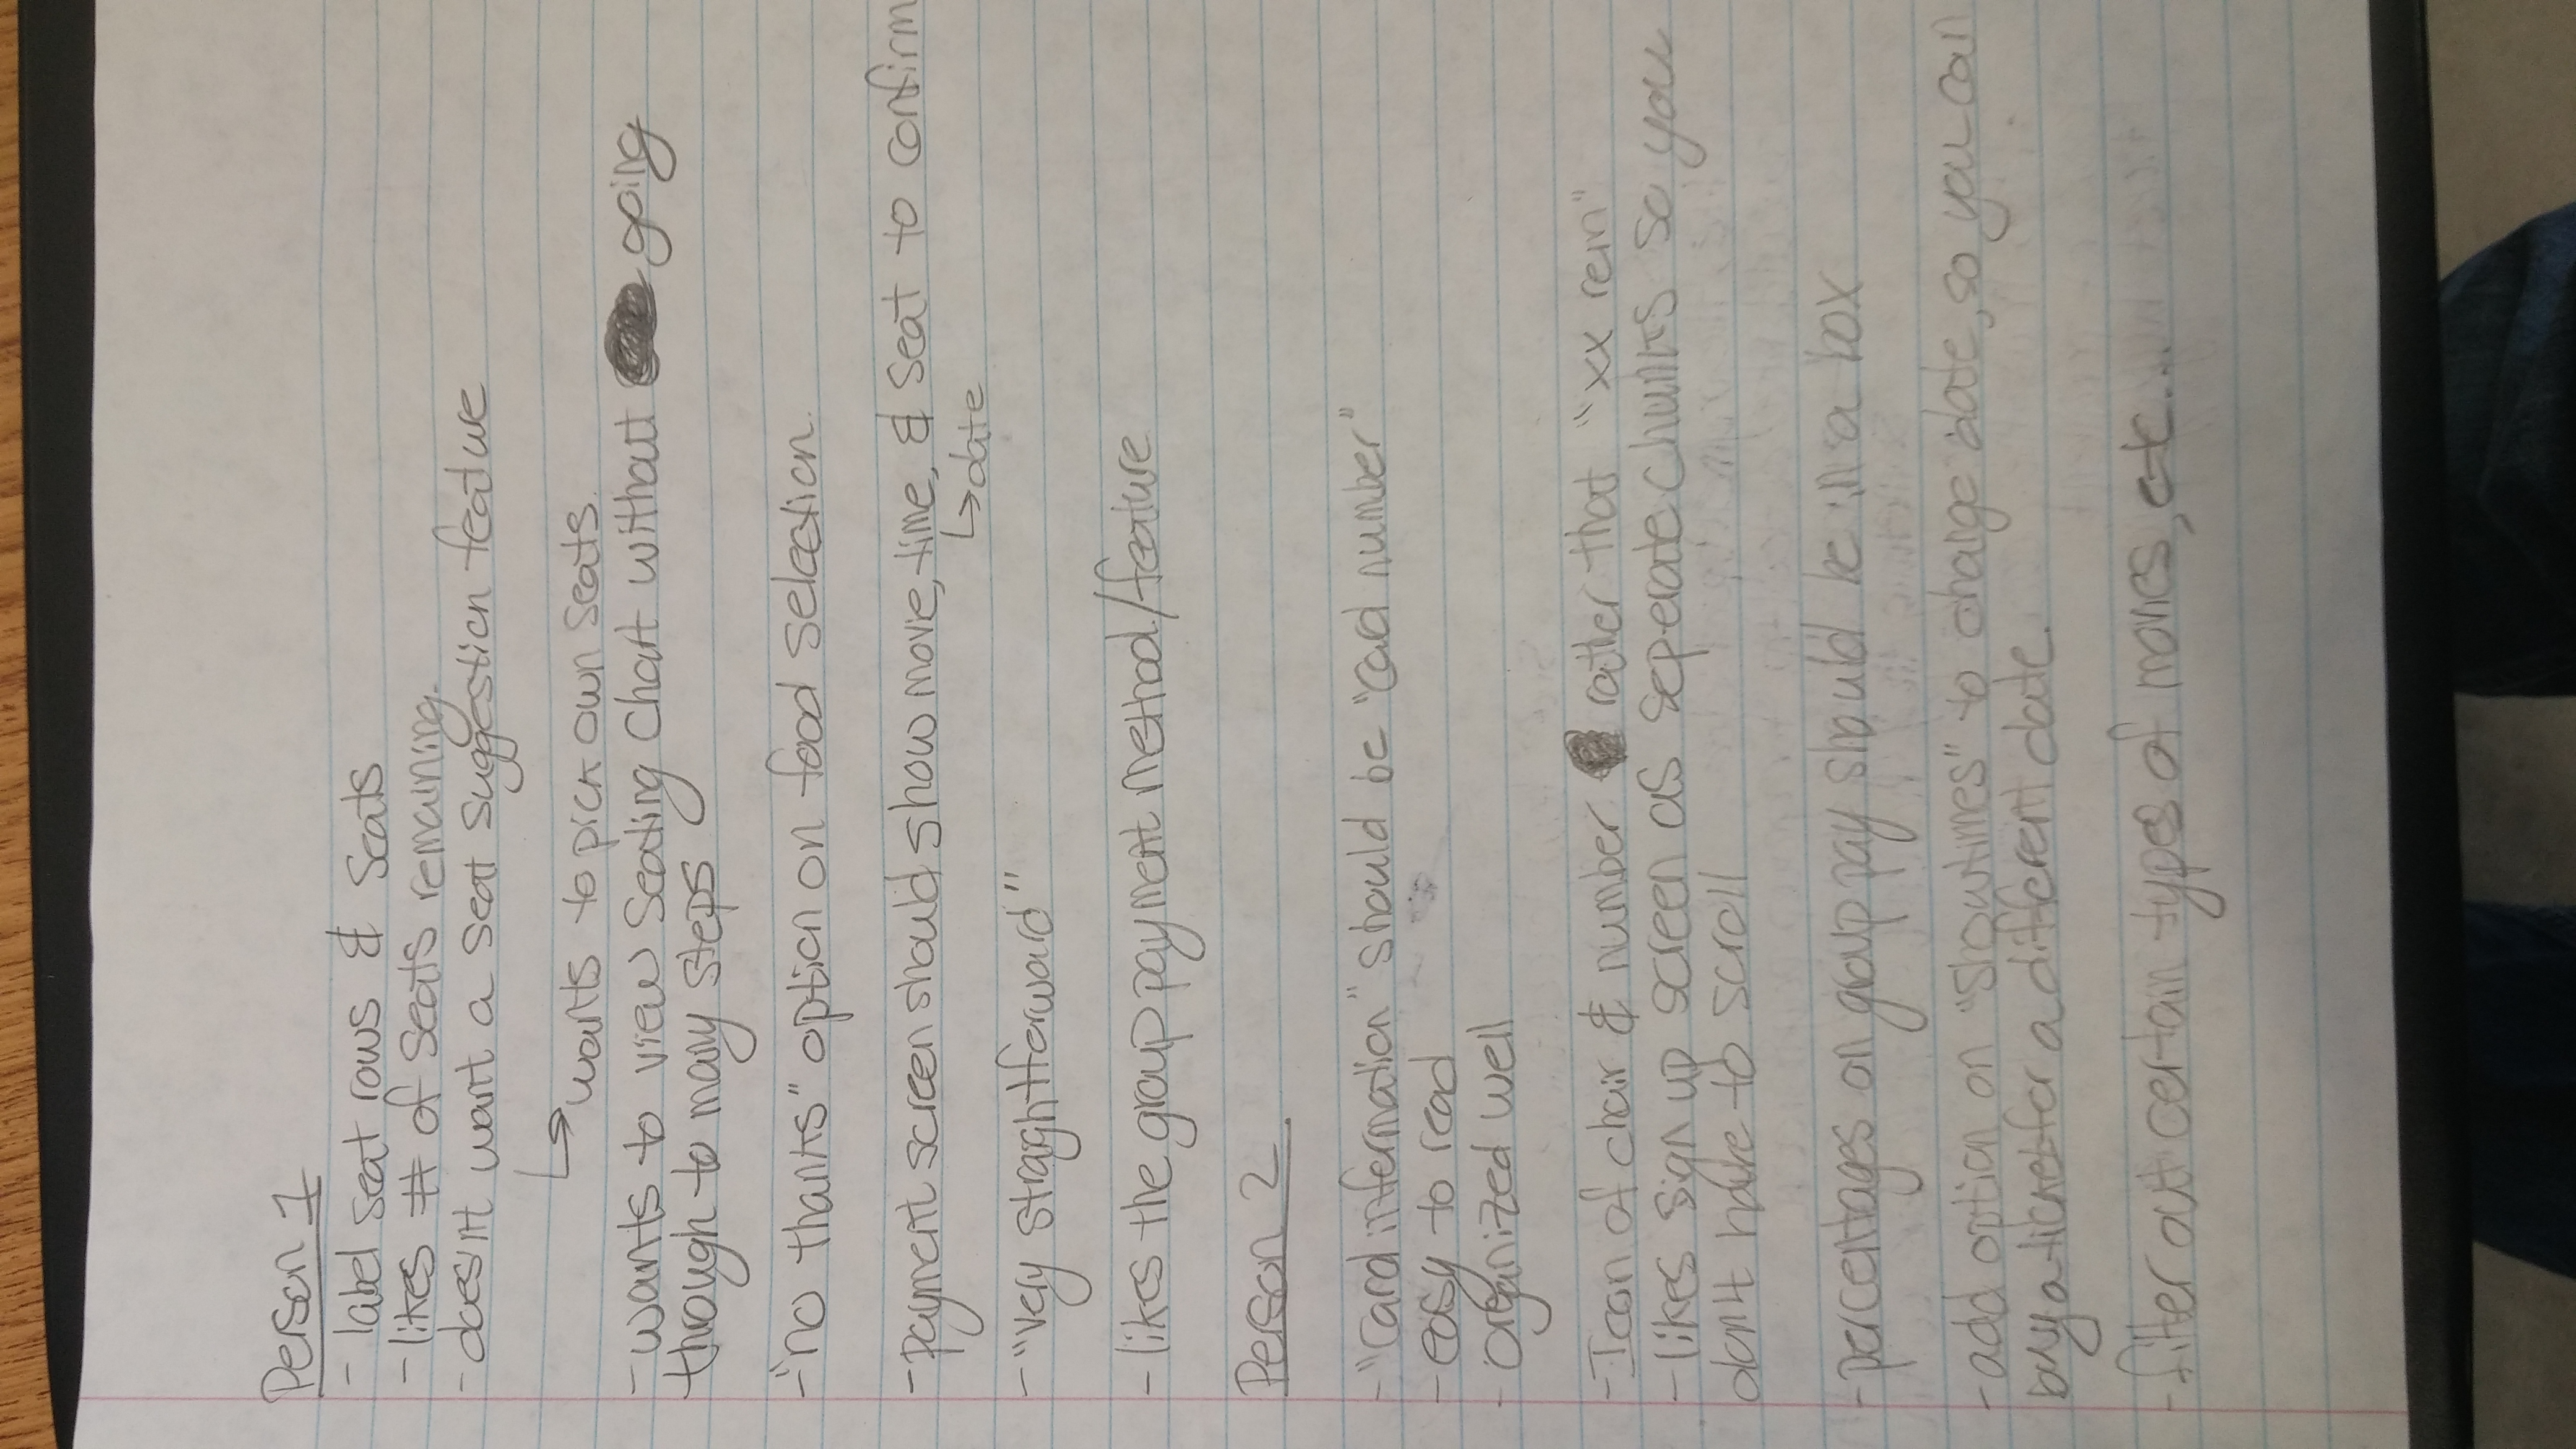 Person 1
- label seat rows & seats
- likes # of seats remaining.
- doesn't want a seat suggestion feature
↳ wants to pick own seats.
- wants to view seating chart without going
through to many steps
- "no thanks" option on food selection.
- payment screen should show movie, time, & seat to confirm
↳ date
- "very straightforward"
- likes the group payment method/feature
Person 2
- "Card information" should be "card number"
- easy to read
- organized well
- Icon of chair & number rather that "xx rem"
- likes sign up screen as seperate chunks so you
don't have to scroll
- percentages on group pay should be in a box
- add option on "showtimes" to change date, so you can
buy a ticket for a different date.
- filter out certain types of movies, etc...